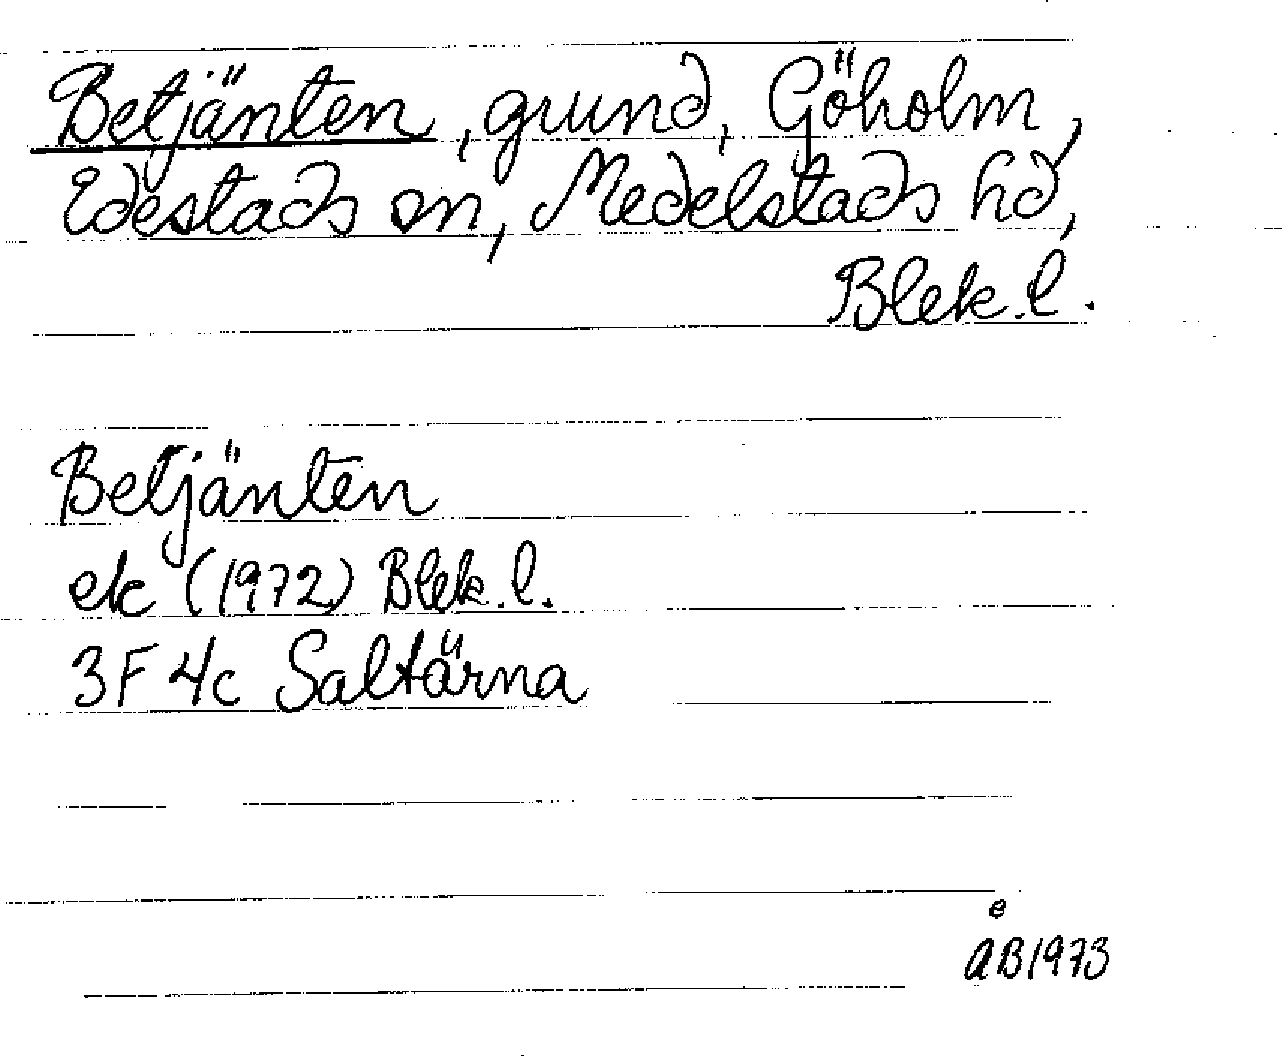 Betjänten, grund, Göholm,
Edestads sn, Medelstads hd,
Blek.l.
Betjänten
ek (1972) Blek.l.
3F 4c Saltärna
e
AB 1973